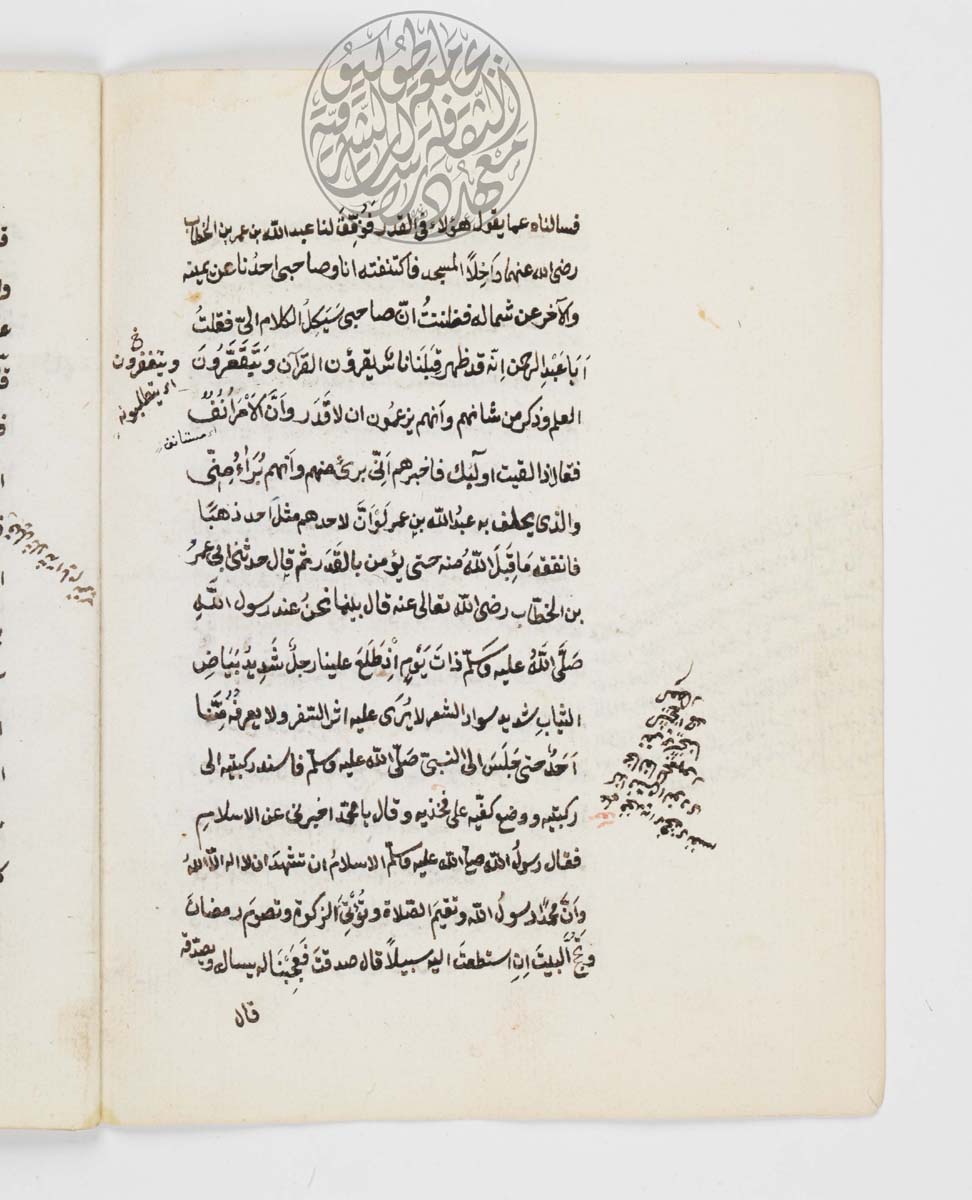 فسالناه عما يقول هؤلاء في القدر فَوُفِّقَ لنا عبد الله بن عمر بن الخطاب
رضى الله عنهما دَاخِلًا المسجد فاكتنفته انا وصاحبى احدُنا عن يمينه
والآخر عن شماله فظننتُ انّ صاحبى سَيَكِلُ الكلام الىّ فقلتُ
اَبَا عَبْدِ الرحمن اِنّه قد ظهر قِبَلَنا ناسٌ يقرؤن القرآن وَيَتَقَعَّرُونَ
العلم وذكر من شانهم وانهم يزعمُون ان لا قَدَر وَاَنَّ الاَمْرَ اُنُفٌ
فقال اذا لقيت اولٓئِك فاخبرهم اَنِّى برىٌٔ منهم وانهم بُرَاءُ مِنِّى
والذى يحلف به عبدُ الله بن عمر لَوْ اَنَّ لاحدهم مثلَ احد ذهبًا
فانفقه مَا قَبِلَ اللهُ منه حتى يؤمن بالقَدَر ثم قال حدثنى ابى عمرُ
بن الخطّاب رضى الله تعالى عنه قال بينما نحنُ عند رسول اللهِ
صَلَّى اللهُ عليه وَسَلّم ذاتَ يَوْمٍ اِذْ طَلَعَ علينا رجلٌ شَدِيدُ بَيَاضِ
الثياب شديد سواد الشعر لا يُرَى عليه اثر السّفر ولا يعرفُهُ مِنَّا
اَحَدٌ حتى جَلَسَ الى النبىّ صَلّى الله عليه وسلّم فاسند ركبتيه الى
ركبتيه ووضع كفيّه على فخذيه وقال يا محمّد اخبرنى عن الاسلامِ
فقال رسولُ الله صلى الله عليه وسلّم الاسلامُ ان تشهدَ ان لا اله الّا اللهُ
وَاَنَّ محمّدًا رسولُ الله وتقيمَ الصّلاة وتُؤْتِىَ الزكوة وتصومَ رمضانَ
وتَحُجَّ البيتَ اِنِ استطعتَ اليه سبيلًا قال صدقتَ فَعَجِبْنَا له يساله ويصدّقه
قال
خ
ويتفقرون
اى يتطلبونه
اى مستانف